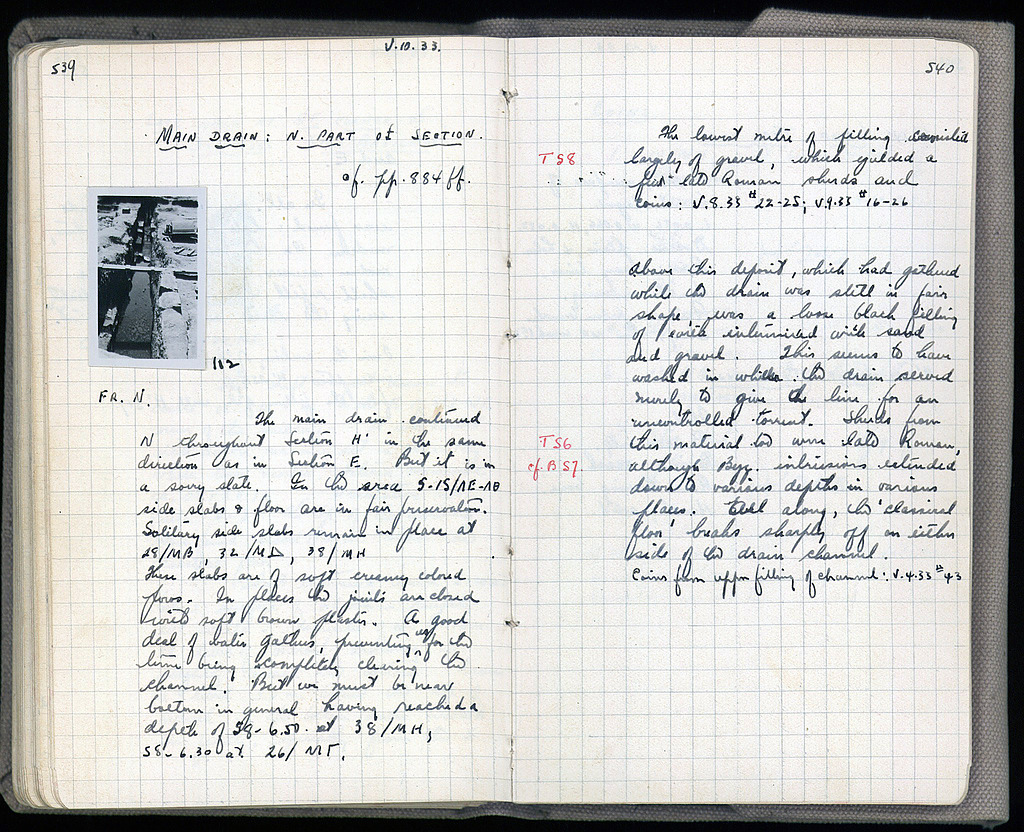 539
V.10.33.
MAIN DRAIN: N. PART of SECTION.
cf. pp. 884 ff.
112
FR. N.
The main drain continued
N throughout Section H' in the same
direction as in Section E. But it is in
a sorry state. In the area 5-15/ΛΕ-ΛΘ
side slabs & floor are in fair preservation.
Solitary side slabs remain in place at
28/ΜΒ, 32/ΜΔ, 38/ΜΗ
These slabs are of soft creamy colored
poros. In places the joints are closed
with soft brown plaster. A good
deal of water gathers, preventing us for the
time being completely clearing the
channel. But we must be near
bottom in general having reached a
depth of 58-6.50 at 38/ΜΗ,
58-6.30 at 26/ΜΓ.
540
The lowest metre of filling consisted
TS8
largely of gravel, which yielded a
few late Roman sherds and
coins: V.8.33 #22-25; V.9.33 #16-26
Above this deposit, which had gathered
while the drain was still in fair
shape, was a loose black filling
of earth intermixed with sand
and gravel. This seems to have
washed in when the drain served
merely to give the line for an
uncontrolled torrent. Sherds from
TS6
this material too were late Roman,
cf. BS7
although Byz. intrusions extended
down to various depths in various
places. All along, the 'classical
floor' breaks sharply off on either
side of the drain channel.
Coins from upper filling of channel: V.4.33 #43